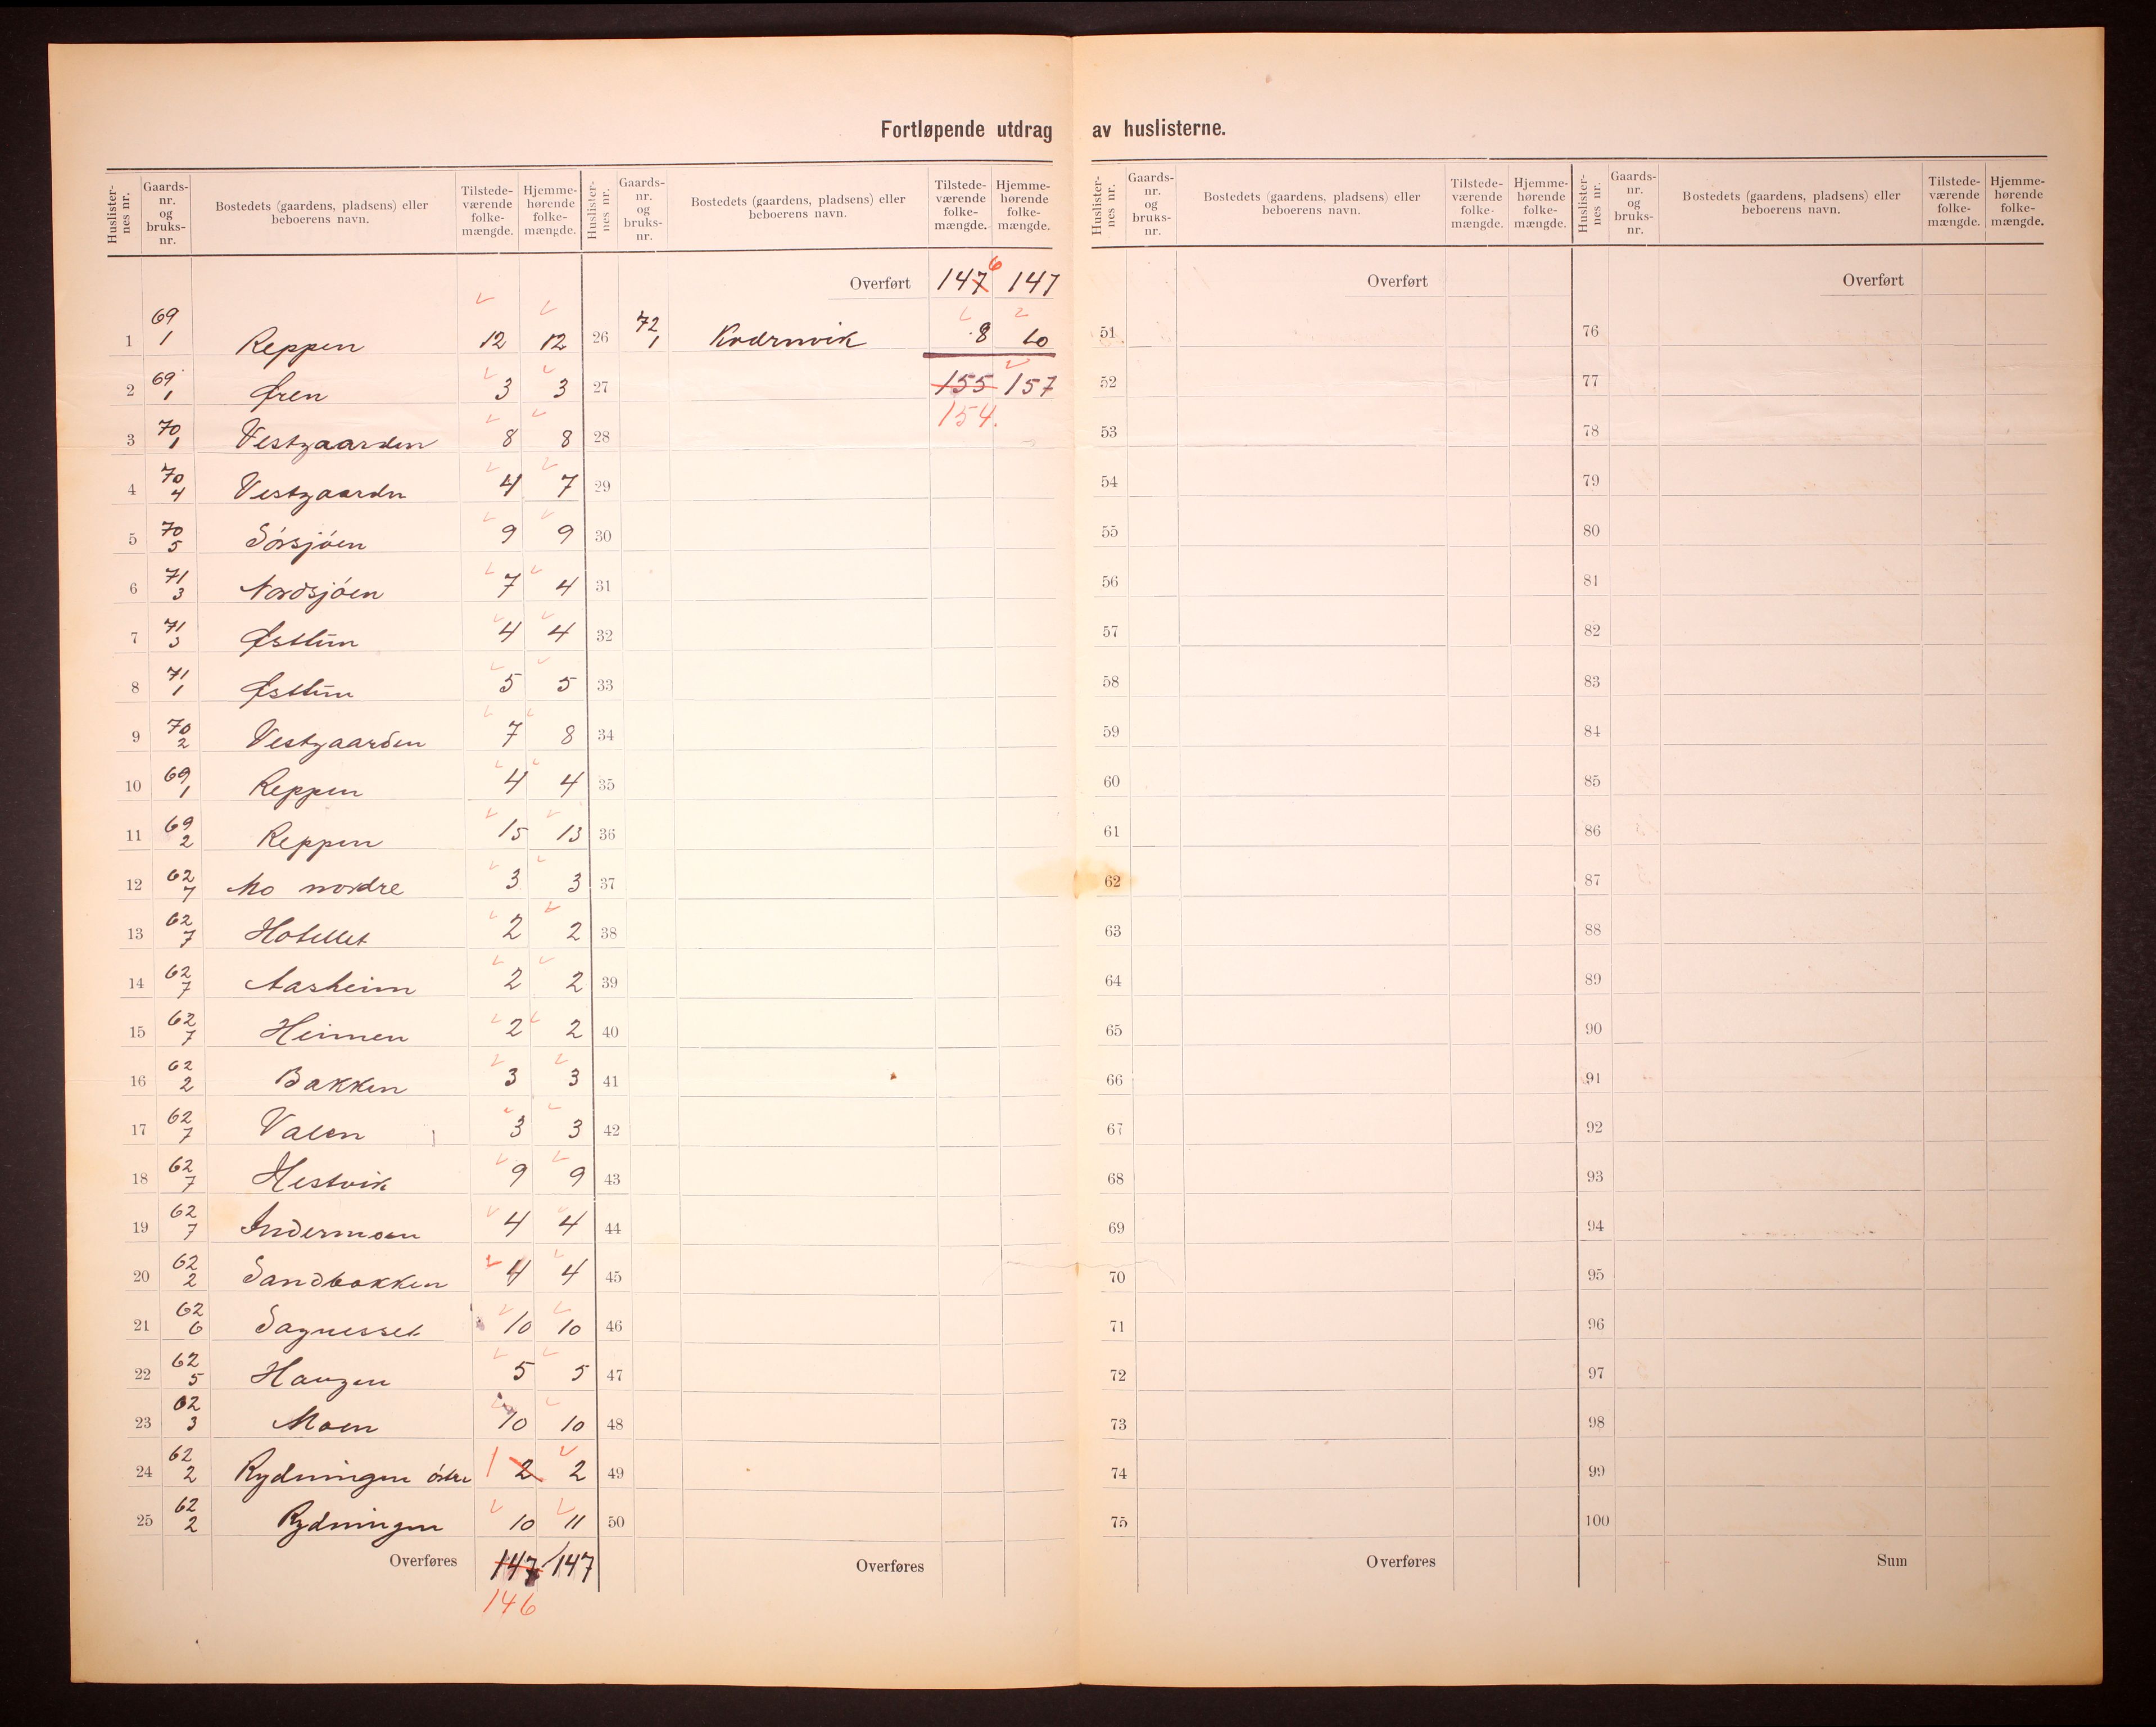 Fortløpende utdrag av huslisterne.
Huslisternes nr. Gaards-nr. og bruks-nr. Bostedets (gaardens, pladsens) eller beboerens navn. Tilstede-værende folke-mængde. Hjemme-hørende folke-mængde.
1 69/1 Reppen 12 12
2 69/1 Øren 3 3
3 70/1 Vestgaarden 8 8
4 70/4 Vestgaarden 4 7
5 70/5 Sørsjøen 9 9
6 71/3 Nordsjøen 7 4
7 71/3 Østtun 4 4
8 71/1 Østtun 5 5
9 70/2 Vestgaarden 7 8
10 69/1 Reppen 4 4
11 69/2 Reppen 15 13
12 62/7 Mo nordre 3 3
13 62/7 Hotellet 2 2
14 62/7 Aasheim 2 2
15 62/7 Heimen 2 2
16 62/2 Bakken 3 3
17 62/7 Valen 3 3
18 62/7 Hestvik 9 9
19 62/7 Indermoen 4 4
20 62/2 Sandbakken 4 4
21 62/6 Sagnesset 10 10
22 62/5 Haugen 5 5
23 62/3 Moen 10 10
24 62/2 Rydningen østre 1 2 2
25 62/2 Rydningen 10 11
Overføres 147 147
146
Huslisternes nr. Gaards-nr. og bruks-nr. Bostedets (gaardens, pladsens) eller beboerens navn. Tilstede-værende folke-mængde. Hjemme-hørende folke-mængde.
Overført 147 6 147
26 72/1 Kvernvik 8 10
27 155 157
154.
28
29
30
31
32
33
34
35
36
37
38
39
40
41
42
43
44
45
46
47
48
49
50
Overføres
Huslisternes nr. Gaards-nr. og bruks-nr. Bostedets (gaardens, pladsens) eller beboerens navn. Tilstede-værende folke-mængde. Hjemme-hørende folke-mængde.
Overført
51
52
53
54
55
56
57
58
59
60
61
62
63
64
65
66
67
68
69
70
71
72
73
74
75
Overføres
Huslisternes nr. Gaards-nr. og bruks-nr. Bostedets (gaardens, pladsens) eller beboerens navn. Tilstede-værende folke-mængde. Hjemme-hørende folke-mængde.
Overført
76
77
78
79
80
81
82
83
84
85
86
87
88
89
90
91
92
93
94
95
96
97
98
99
100
Sum